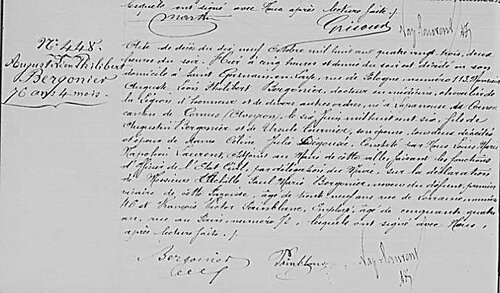 lesquels ont signé avec Nous après lecture faite ./.
N° 448.
Auguste Léon Philibert
Bergonier
76 ans 4 mois.
Acte de décès du dix neuf Octobre mil huit cent quatre vingt trois, deux
heures du soir. Hier à cinq heures et demie du soir est décédé en son
domicile à Saint Germain en Laye, rue de Pologne, numéro 113, Monsieur
Auguste Léon Philibert Bergonier, docteur en médecine, chevalier de
la Légion d'honneur et de divers autres ordres, né à
canton de Camarès (Aveyron), le six juin mil huit cent sept, fils de
Augustin Bergonier et de Ursule Fournier, son épouse, tous deux décédés
et époux de Dame Céline Julie. Constaté par Nous Louis Marie
Napoléon Laurent, Adjoint au Maire de cette ville, faisant les fonctions
d'Officier de l'Etat Civil, par délégation du Maire, sur la déclaration
de Monsieur Achille Paul Marie Bergonier, neveu du défunt,
de cette, âgé de trente neuf ans, rue de Lorraine, numéro
et François Victor Painblanc, employé, âgé de cinquante quatre
ans, rue de Paris, numéro, lesquels ont signé avec Nous,
après lecture faite ./.
Bergonier Painblanc Nap Laurent